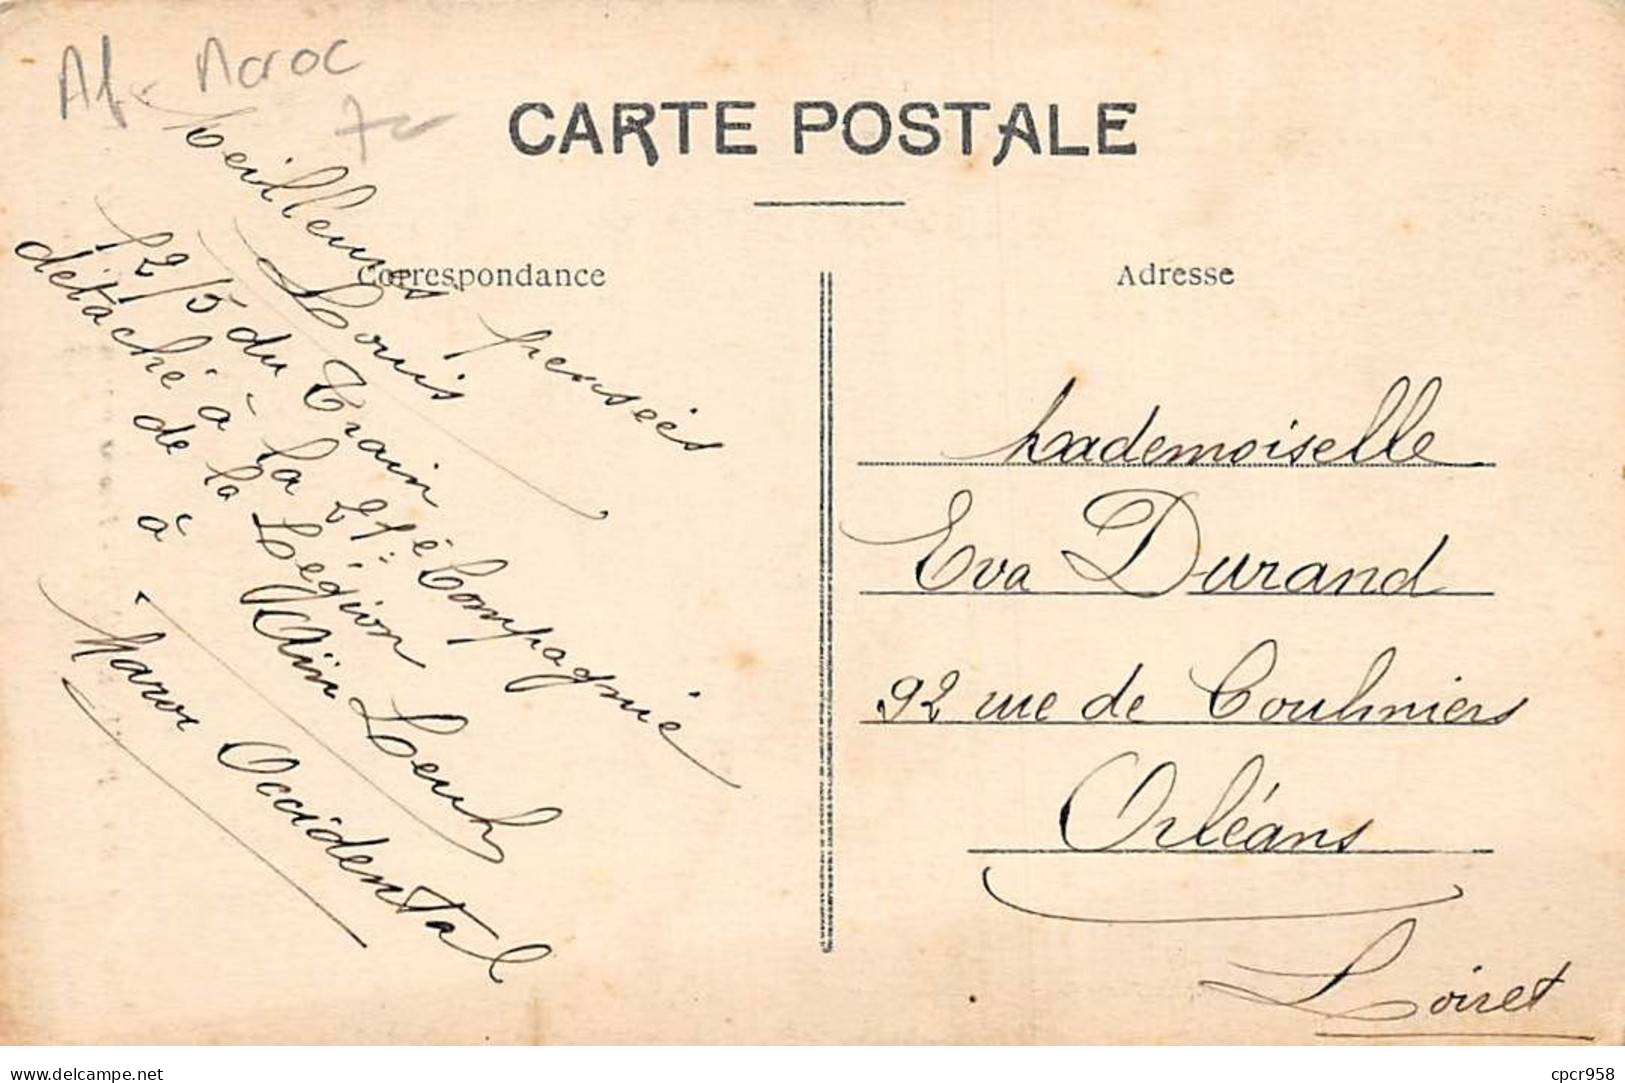 Af. Maroc
7
CARTE POSTALE
Correspondance
Adresse
Meilleures pensées
Louis
12/5 du Train
détaché à la 21e Compagnie
de la Légion
à Aïn Leuh
Maroc Occidental
Mademoiselle
Eva Durand
92 rue de Coulmiers
Orléans
Loiret
www.delcampe.net
cpcr958